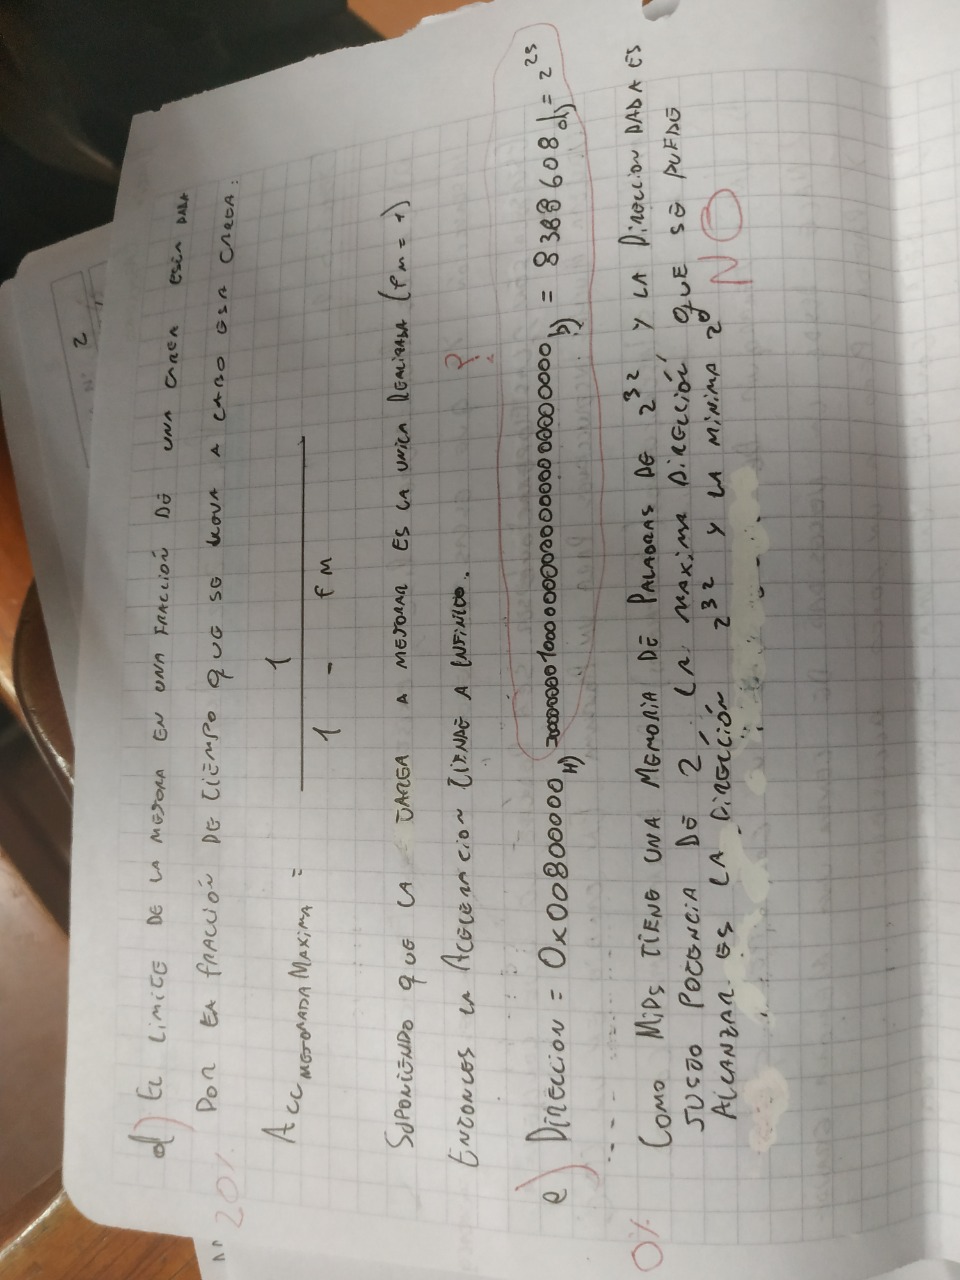 2
d) El limite de la mejora en una fracción de una tarea esta dada
por la fracción de tiempo que se lleva a cabo esa tarea:
20%
Acc mejorada Maxima = 1 / 1 - fm
Suponiendo que la tarea a mejorar es la unica realizada (fm = 1)
Entonces la aceleracion tiende a infinito. ?
e) Direccion = 0x00800000 H) 00000000100000000000000000000000 b) = 8388608 d) = 2²⁵
0% Como Mips tiene una memoria de palabras de 2³² y la Direccion dada es
justo potencia de 2 la maxima dirección que se puede
alcanzar es la dirección 2³² y la minima 2⁰
NO